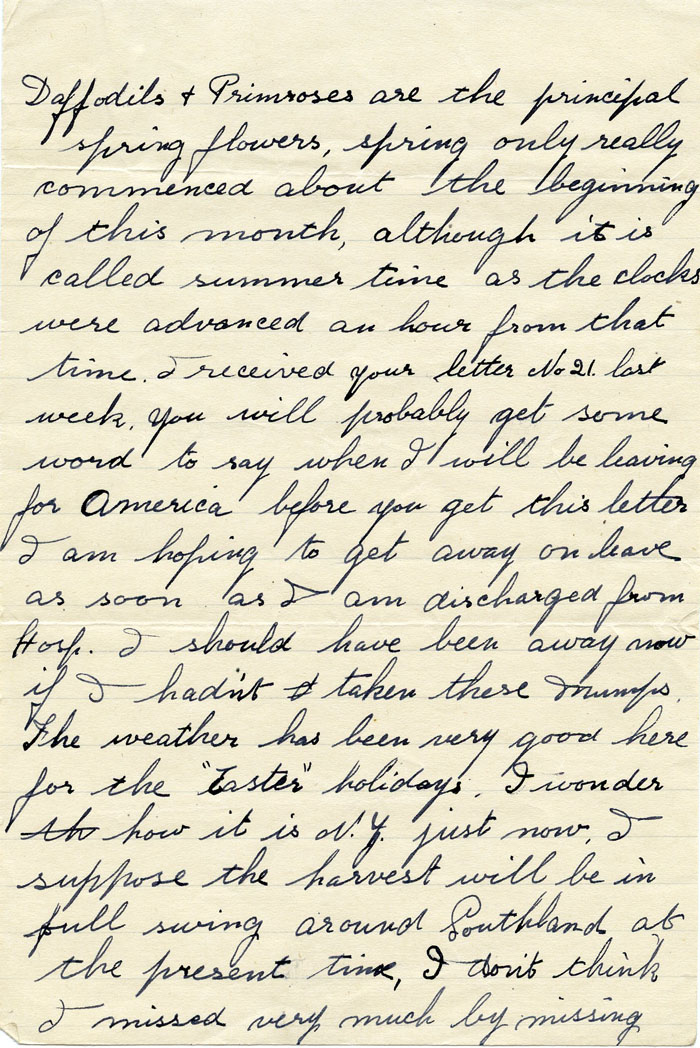 Daffodils & Primroses are the principal
spring flowers, spring only really
commenced about the beginning
of this month, although it is
called summer time as the clocks
were advanced an hour from that
time. I received your letter No 21. last
week. You will probably get some
word to say when I will be leaving
for America before you get this letter
I am hoping to get away on leave
as soon as I am discharged from
Hosp. I should have been away now
if I hadn't taken these mumps.
The weather has been very good here
for the "Easter" holidays. I wonder
how it is N.Y. just now, I
suppose the harvest will be in
full swing around Southland at
the present time, I don't think
I missed very much by missing